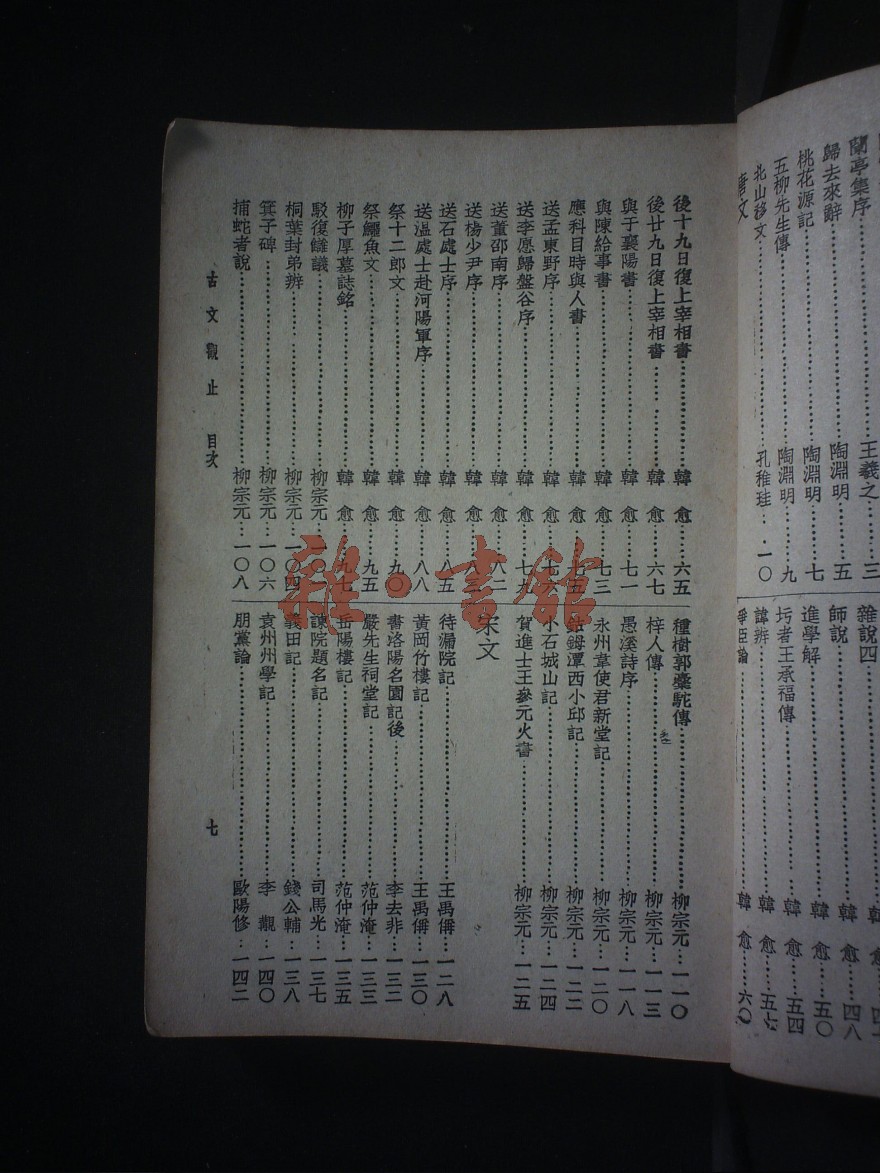 蘭亭集序……王羲之…三
歸去來辭……陶淵明…五
桃花源記……陶淵明…七
五柳先生傳……陶淵明…九
北山移文……孔稚珪…一〇
唐文
雜說四……韓　愈
師說……韓　愈…四八
進學解……韓　愈…五〇
圬者王承福傳……韓　愈…五四
諱辨……韓　愈…五七
爭臣論……韓　愈…六〇
後十九日復上宰相書……韓　愈…六五
後廿九日復上宰相書……韓　愈…六七
與于襄陽書……韓　愈…七一
與陳給事書……韓　愈…七三
應科目時與人書……韓　愈…七五
送孟東野序……韓　愈…七六
送李愿歸盤谷序……韓　愈…七九
送董邵南序……韓　愈…八二
送楊少尹序……韓　愈…八三
送石處士序……韓　愈…八五
送溫處士赴河陽軍序……韓　愈…八八
祭十二郎文……韓　愈…九〇
祭鱷魚文……韓　愈…九五
柳子厚墓誌銘……韓　愈…九七
駁復讎議……柳宗元
桐葉封弟辨……柳宗元…一〇四
箕子碑……柳宗元…一〇六
捕蛇者說……柳宗元…一〇八
種樹郭橐駝傳……柳宗元…一一〇
梓人傳……柳宗元…一一三
愚溪詩序……柳宗元…一一八
永州韋使君新堂記……柳宗元…一二〇
鈷鉧潭西小邱記……柳宗元…一二二
小石城山記……柳宗元…一二四
賀進士王參元火書……柳宗元…一二五
宋文
待漏院記……王禹偁…一二八
黃岡竹樓記……王禹偁…一三〇
書洛陽名園記後……李去非…一三二
嚴先生祠堂記……范仲淹…一三三
岳陽樓記……范仲淹…一三五
諫院題名記……司馬光…一三七
義田記……錢公輔…一三八
袁州州學記……李　覯…一四〇
朋黨論……歐陽修…一四二
古文觀止　目次
七
雜·書館